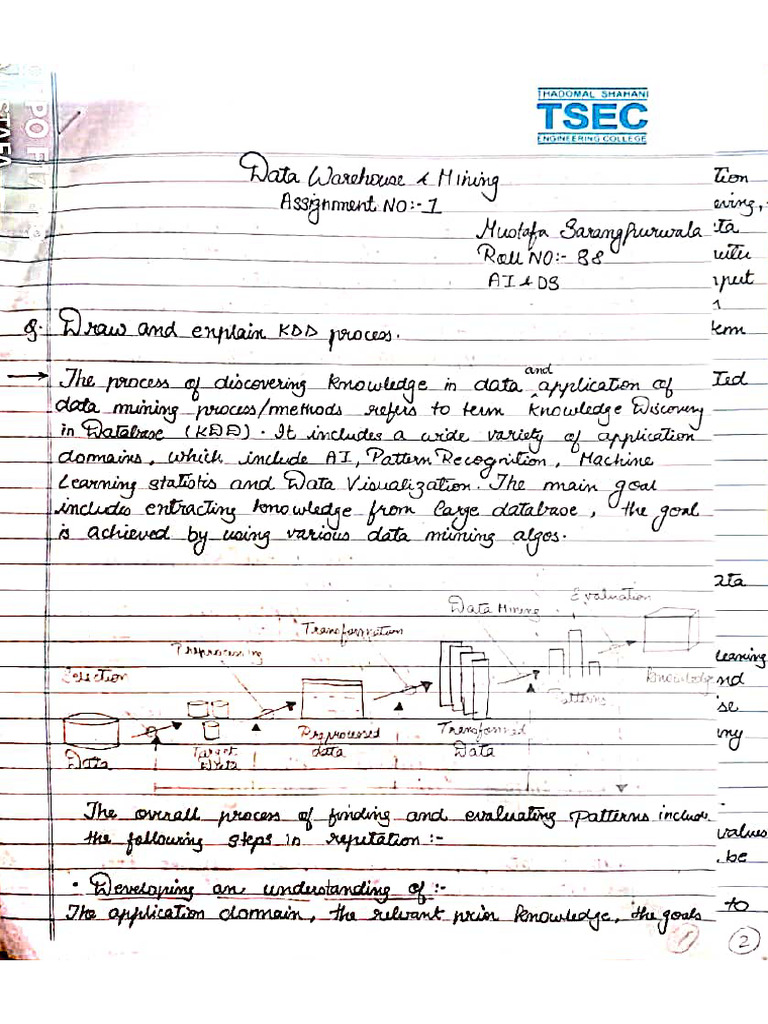 THADOMAL SHAHANI
TSEC
ENGINEERING COLLEGE
Data Warehouse & Mining
Assignment NO:- 1
Mustafa Sarangpurwala
Roll NO:- 88
AI & DS
Q. Draw and explain KDD process.
→ The process of discovering knowledge in data and application of
data mining process/methods refers to term Knowledge Discovery
in Database (KDD). It includes a wide variety of application
domains, which include AI, Pattern Recognition, Machine
Learning statistis and Data Visualization. The main goal
includes extracting knowledge from large database, the goal
is achieved by using various data mining algos.
Evaluation
Data Mining
Transformation
Preprocessing
Selection
Knowledge
Patterns
Transformed
Data
Preprocessed
data
Target
Data
Data
The overall process of finding and evaluating Patterns include
the following steps in reputation :-
• Developing an understanding of :-
The application domain, the relvant prior knowledge, the goals
1
2
tion
eving,
ta
put
tem
Ted
ata
learning
nd
se
my
values
be
to